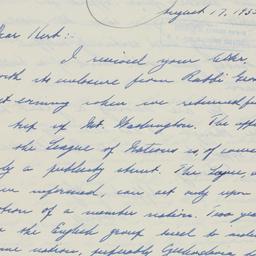 August 17, 193
Dear Herb:-
I received your letter,
with its enclosure from Rabbi
evening when we returned from
trip of Mt. Washington. The
the League of Nations is of course
a publicity stunt. The League,
informed, can act only upon
of a member nation. Two years
the English group tried to make
some nation, preferably